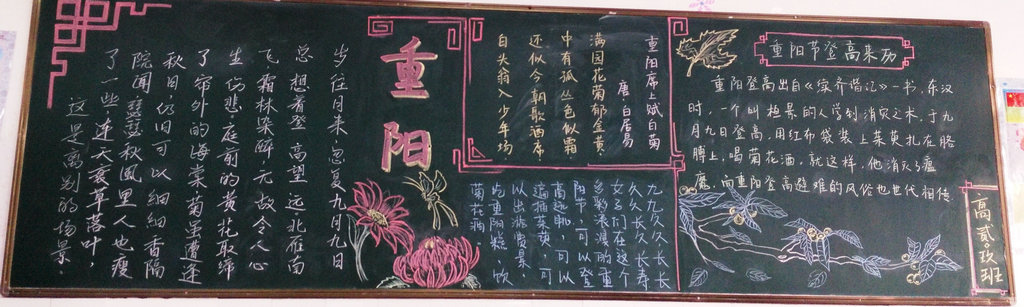 重阳
岁往月来，忽复九月九日
总想着登高望远。北雁南
飞霜林染醉，无故令人心
生伤悲。庭前的黄花取缔
了帘外的海棠菊虽遭逢
秋日仍旧可以细细香隔
院闻瑟瑟秋风里人也瘦
了一些，连天衰草落叶，
这是离别的场景。
重阳席上赋白菊
唐·白居易
满园花菊郁金黄，
中有孤丛色似霜
还似今朝歌酒席
白头翁入少年场.
九九久久，长长
久久长长，长寿
女子们在这个
多彩浪漫的重
阳节，可以登
高远眺，可以
遍插茱萸，可
以出游赏景
重阳糕，饮
菊花酒。
重阳节登高来历
重阳登高出自《续齐谐记》一书，东汉
时，一个叫桓景的人学到消灾之术，于九
月九日登高，用红布袋装上茱萸扎在胳
膊上，喝菊花酒，就这样，他消灭了瘟
魔，而重阳登高避难的风俗也世代相传
高贰·玖班